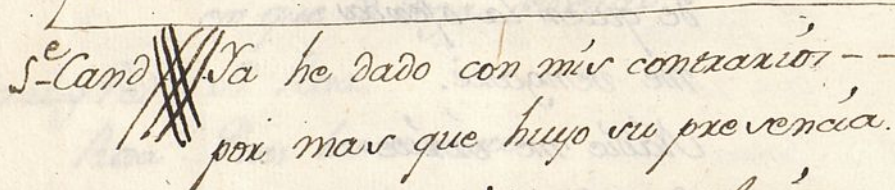 S^e Cand Ya he dado con mis contrarios - -
por mas que huyo su presencia.